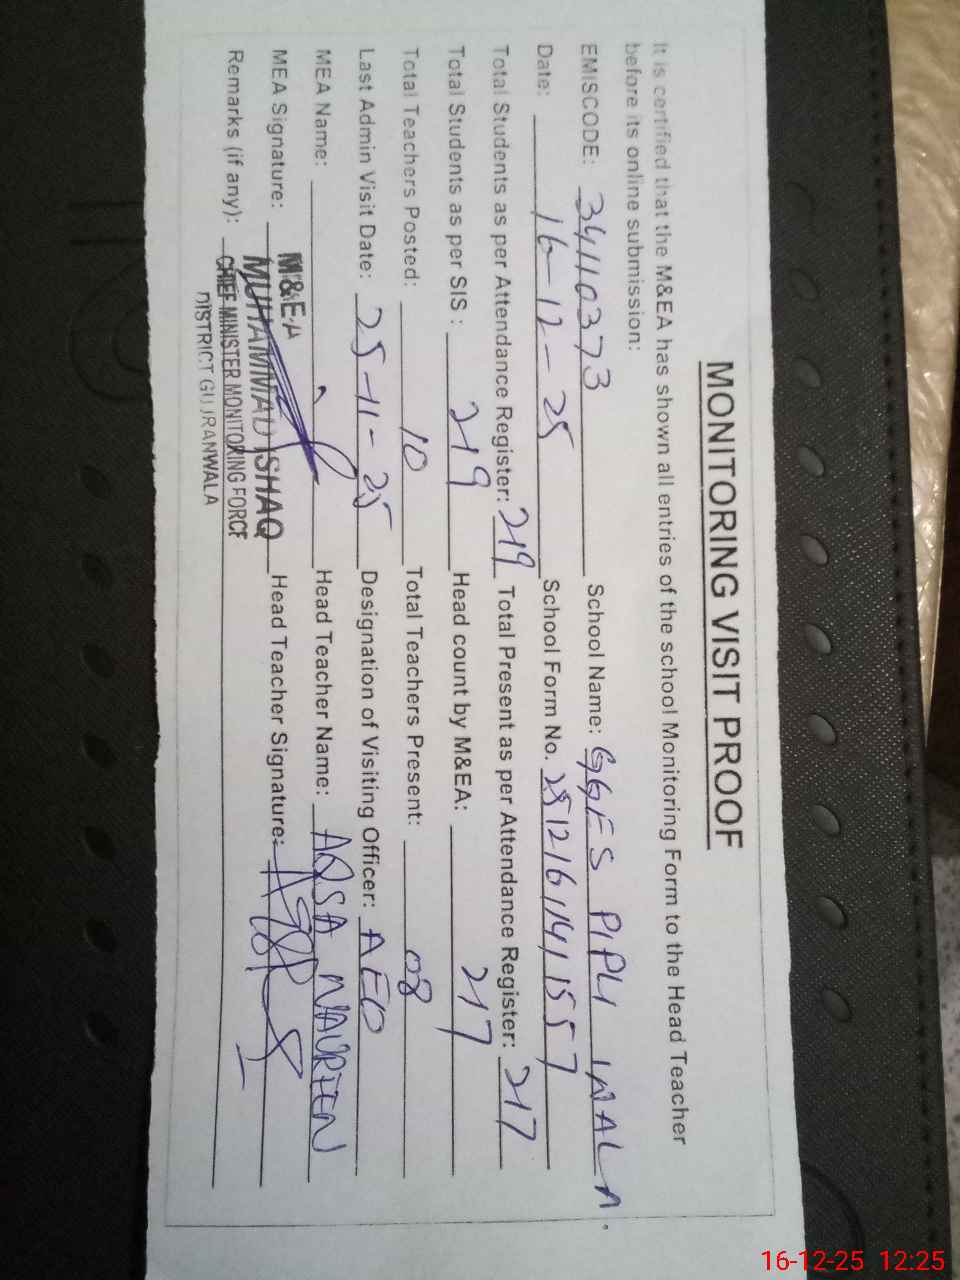 MONITORING VISIT PROOF
It is certified that the M&EA has shown all entries of the school Monitoring Form to the Head Teacher
before its online submission:
EMISCODE: 34110373 School Name: GGES PIPLI WALA.
Date: 16-12-25 School Form No. 251216114115 57
Total Students as per Attendance Register: 219 Total Present as per Attendance Register: 217
Total Students as per SIS : 219 Head count by M&EA: 217
Total Teachers Posted: 10 Total Teachers Present: 08
Last Admin Visit Date: 25-11-25 Designation of Visiting Officer: AEO
MEA Name: Head Teacher Name: AQSA NAUREEN
MEA Signature: Head Teacher Signature:
Remarks (if any):
M&EA
MUHAMMAD ISHAQ
CHIEF MINISTER MONITORING FORCE
DISTRICT GUJRANWALA
16-12-25 12:25